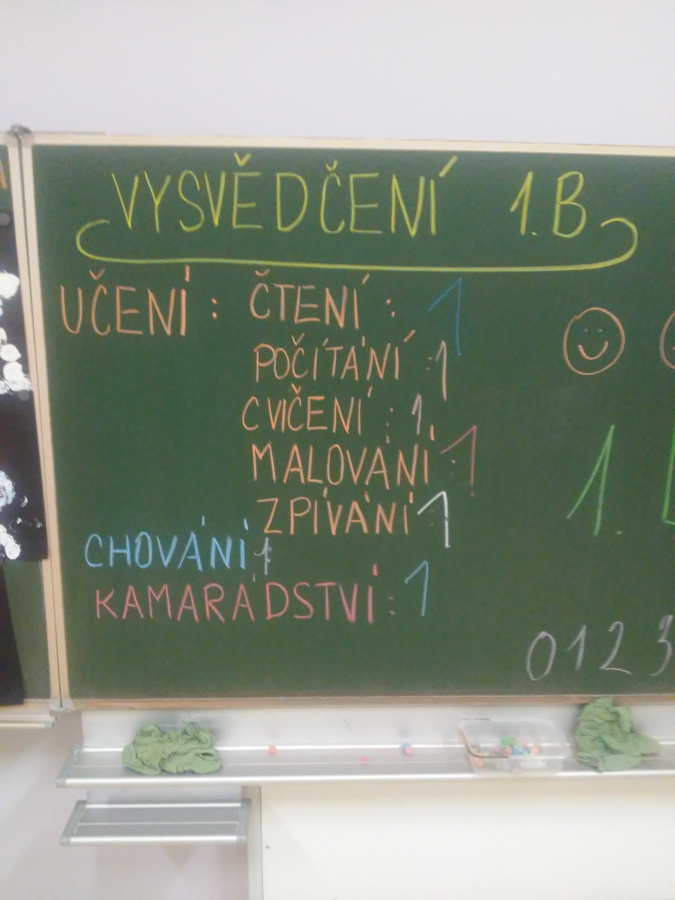 VYSVĚDČENÍ 1.B
UČENÍ : ČTENÍ : 1
POČÍTÁNÍ : 1
CVIČENÍ : 1
MALOVÁNÍ : 1
ZPÍVÁNÍ 1
CHOVÁNÍ 1
KAMARÁDSTVÍ : 1
1.
0 1 2 3